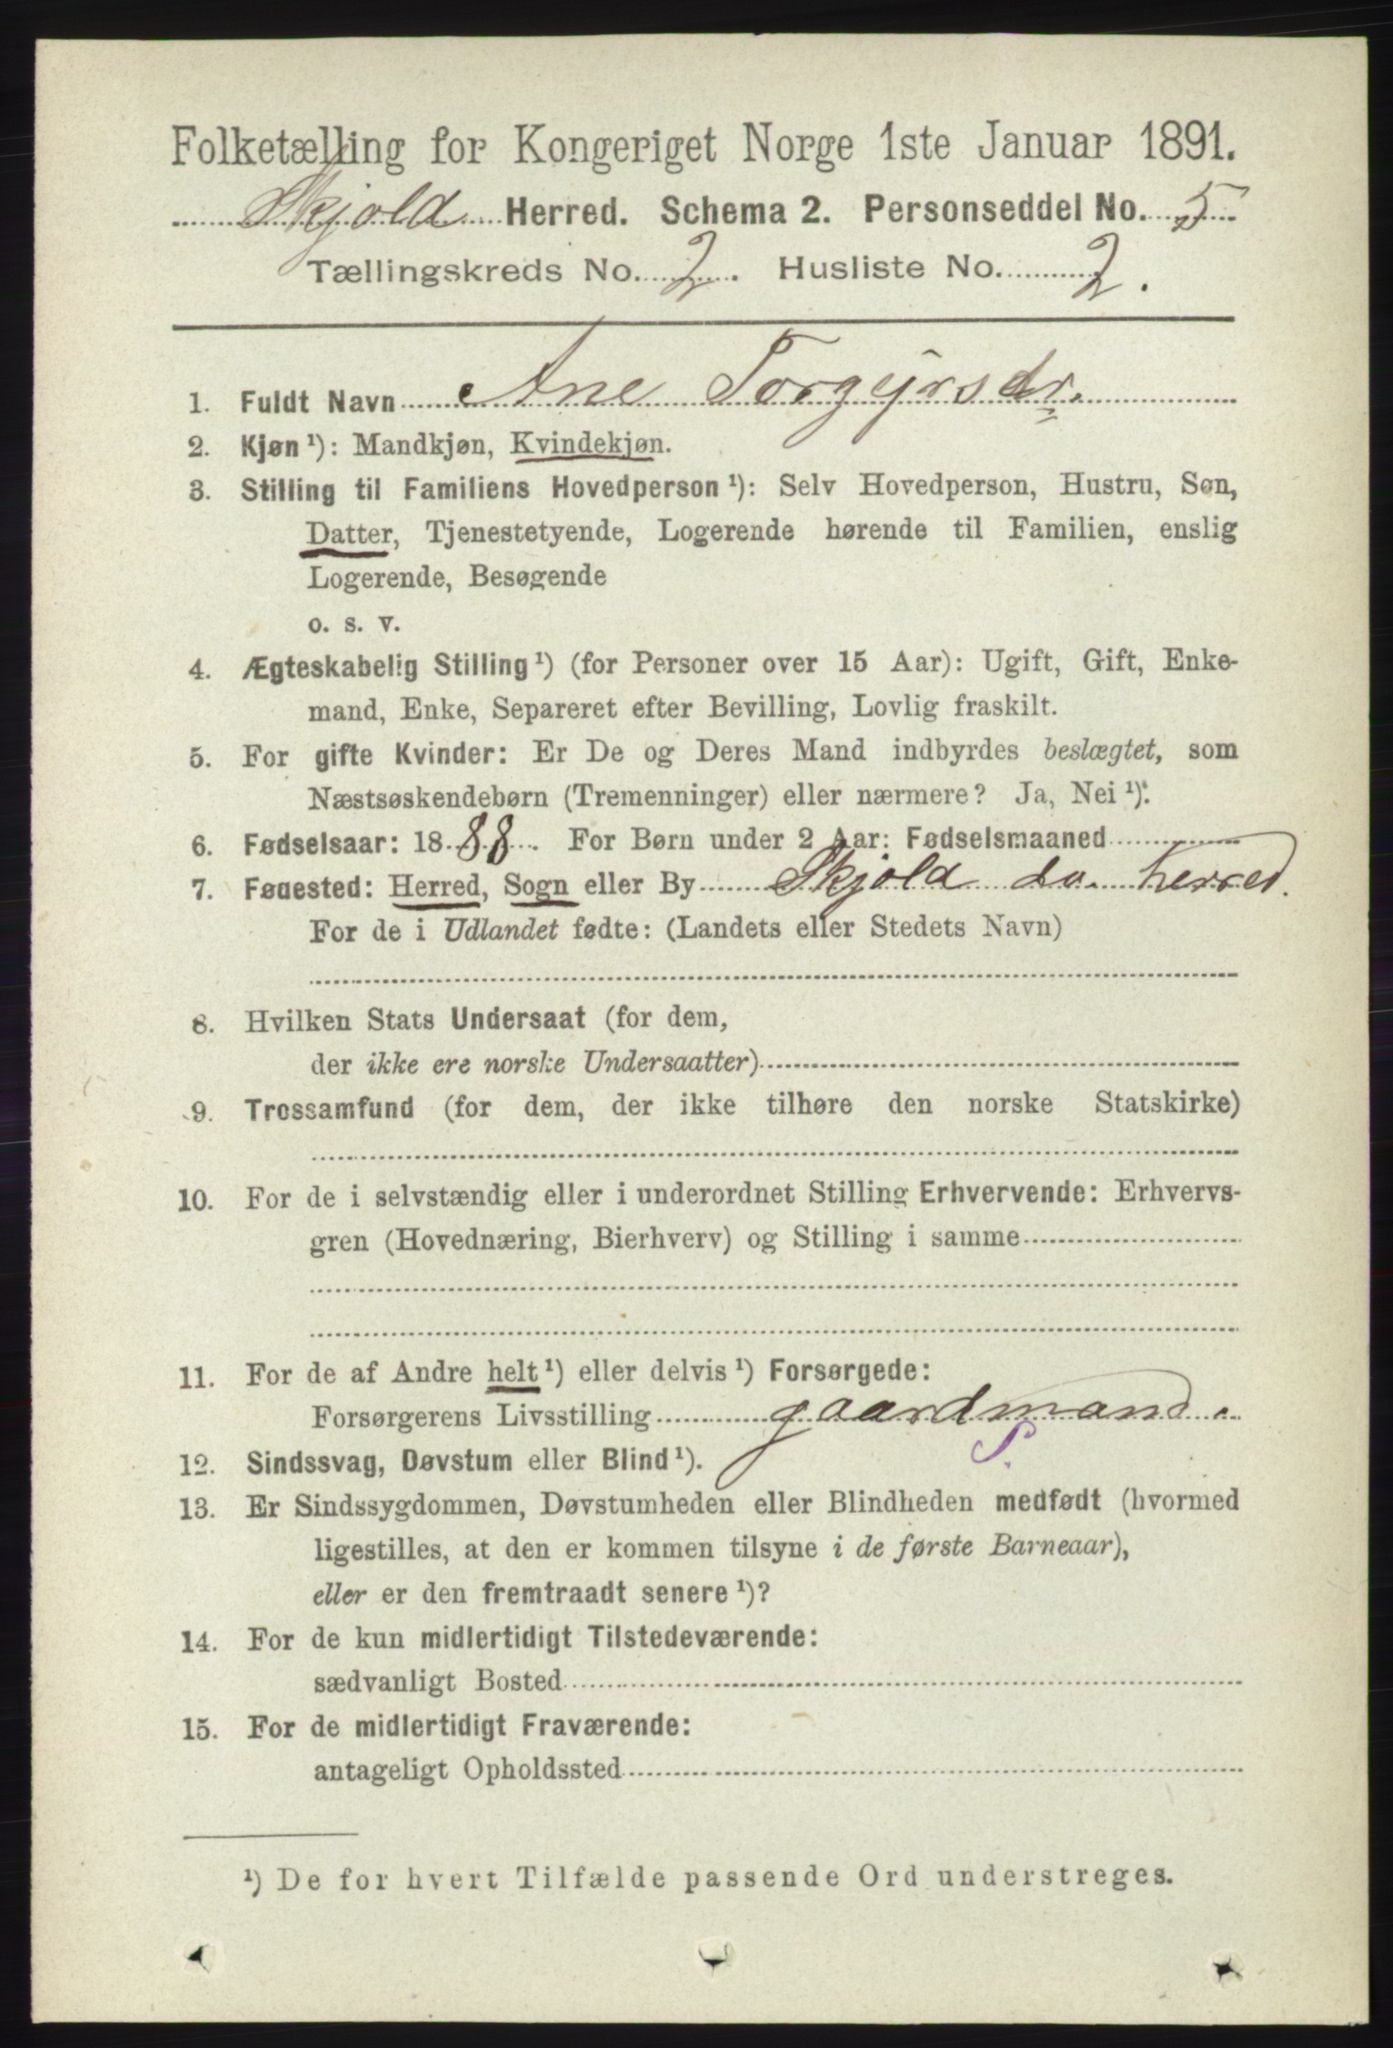 Folketælling for Kongeriget Norge 1ste Januar 1891.
Skjold Herred. Schema 2. Personseddel No. 5
Tællingskreds No. 2. Husliste No. 2.
1. Fuldt Navn Ane Torgyrsdr.
2. Kjøn ¹): Mandkjøn, Kvindekjøn.
3. Stilling til Familiens Hovedperson ¹): Selv Hovedperson, Hustru, Søn,
Datter, Tjenestetyende, Logerende hørende til Familien, enslig
Logerende, Besøgende
o. s. v.
4. Ægteskabelig Stilling ¹) (for Personer over 15 Aar): Ugift, Gift, Enke-
mand, Enke, Separeret efter Bevilling, Lovlig fraskilt.
5. For gifte Kvinder: Er De og Deres Mand indbyrdes beslægtet, som
Næstsøskendebørn (Tremenninger) eller nærmere? Ja, Nei ¹).
6. Fødselsaar: 1888. For Børn under 2 Aar: Fødselsmaaned
7. Fødested: Herred, Sogn eller By Skjold do. herred.
For de i Udlandet fødte: (Landets eller Stedets Navn)
8. Hvilken Stats Undersaat (for dem,
der ikke ere norske Undersaatter)
9. Trossamfund (for dem, der ikke tilhøre den norske Statskirke)
10. For de i selvstændig eller i underordnet Stilling Erhvervende: Erhvervs-
gren (Hovednæring, Bierhverv) og Stilling i samme
11. For de af Andre helt ¹) eller delvis ¹) Forsørgede:
Forsørgerens Livsstilling gaardmand.
S.
12. Sindssvag, Døvstum eller Blind ¹).
13. Er Sindssygdommen, Døvstumheden eller Blindheden medfødt (hvormed
ligestilles, at den er kommen tilsyne i de første Barneaar),
eller er den fremtraadt senere ¹)?
14. For de kun midlertidigt Tilstedeværende:
sædvanligt Bosted
15. For de midlertidigt Fraværende:
antageligt Opholdssted
¹) De for hvert Tilfælde passende Ord understreges.